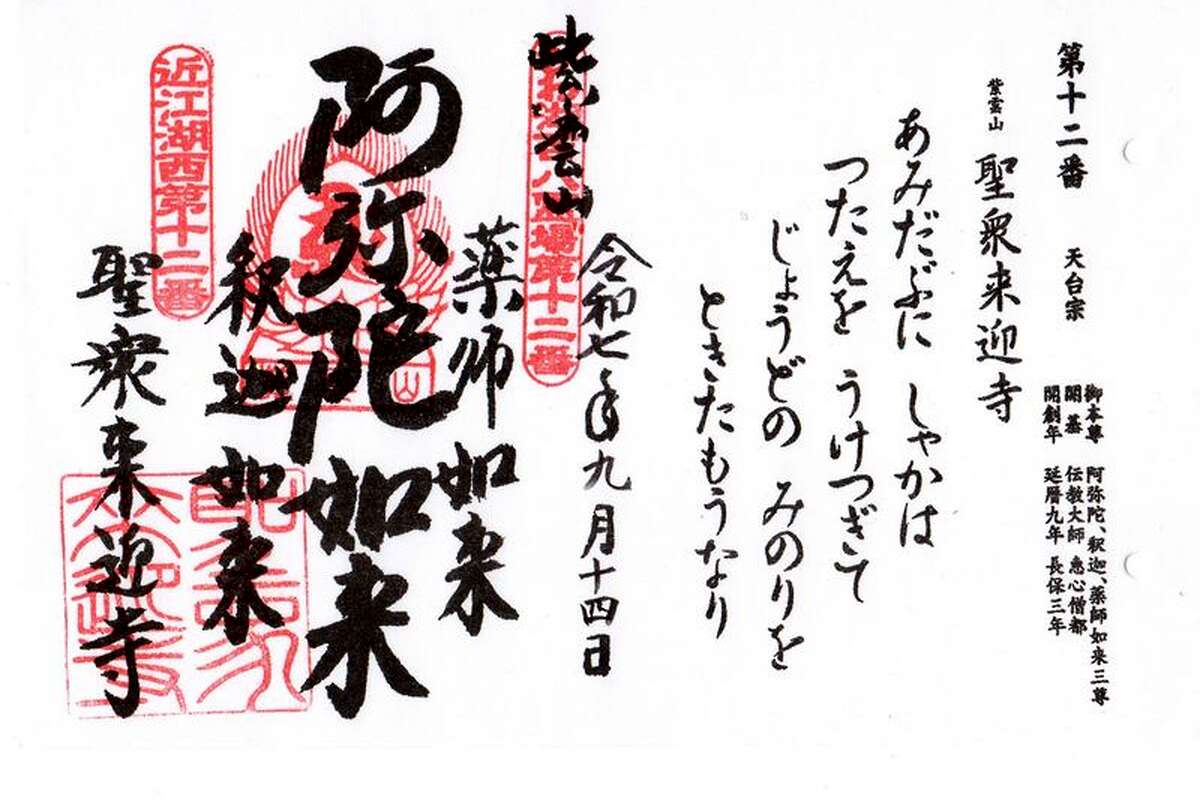 第十二番 天台宗
御本尊 阿弥陀、釈迦、薬師如来三尊
開基 伝教大師 恵心僧都
開創年 延暦九年 長保三年
紫雲山 聖衆来迎寺
あみだぶに しゃかは
つたえを うけつぎて
じょうどの みのりを
ときたもうなり
令和七年九月十四日
紫雲山
場第十二番
薬師如来
阿弥陀如来
釈迦如来
近江湖西第十二番
聖衆来迎寺